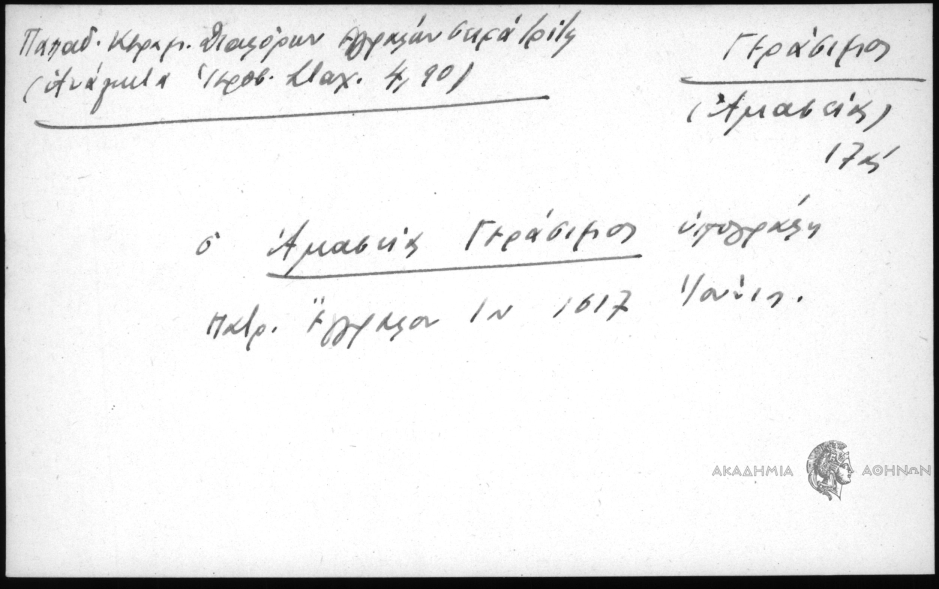 Παπαδ. Κεραμ. Διαφόρων ἐγγράφων σειρά τρίτη
(Ἀνάλεκτα Ἱεροσ. Σταχ. 4, 90)
Γεράσιμος
(Ἀμασείας)
17ος
ὁ Ἀμασείας Γεράσιμος ὑπογράφει
πατρ. Ἔγγραφον ἐν 1617 Ἰουνίῳ.
ΑΚΑΔΗΜΙΑ ΑΘΗΝΩΝ